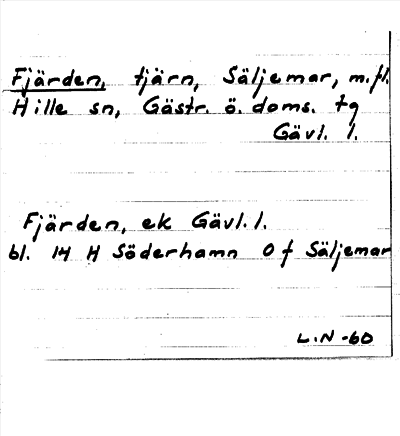 Fjärden, tjärn, Säljemar, m.fl.
Hille sn, Gästr. ö. doms. tg
Gävl. l.
Fjärden, ek Gävl. l.
bl. 14 H Söderhamn O f Säljemar
L.N -60